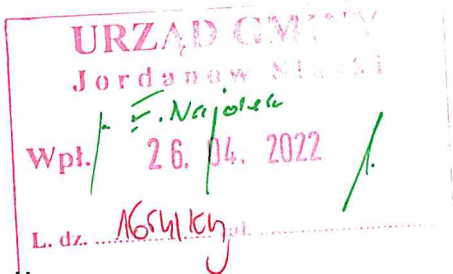 URZĄD GMINY
Jordanów Śląski
F. Najdek
Wpł. 26. 04. 2022
L. dz.